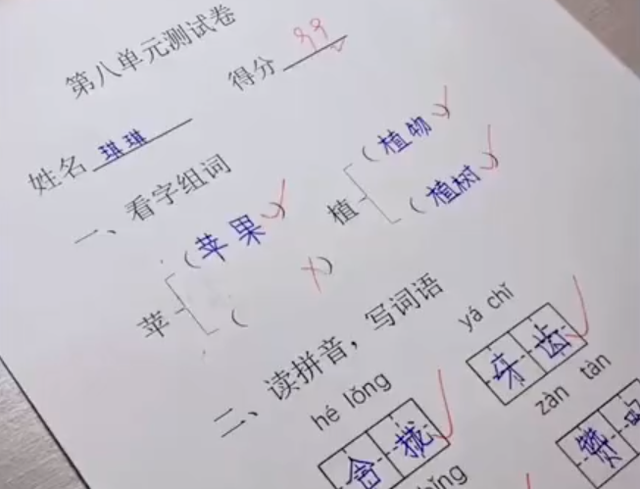 第八单元测试卷
得分 99
姓名 琪琪
一、看字组词
苹 (苹果)
( )
植 (植物)
(植树)
二、读拼音，写词语
hé lǒng
合拢
yá chǐ
牙齿
zàn tàn
赞